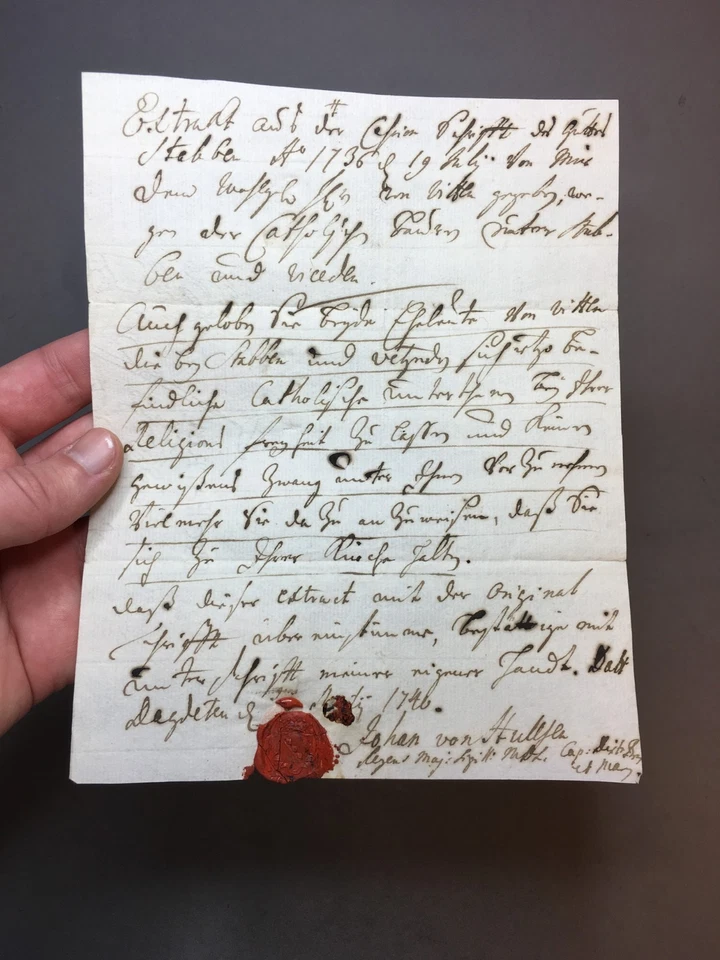 Extract aus der Cession Schrifft des Guttes
Stabben Ao 1736 d 19 July von Mir
dem Wohlgeb Hrn von Vitten gegeben, we-
gen der Catholischen Bauren unter Stab-
ben und
Auch geloben Sie beyde Eheleute von Vitten
die bey Stabben und sich itzo be-
findliche Catholische unterthanen bey Ihrer
Religions freyheit zu lassen und keinen
gewißens zwang unter Ihnen vor zu nehmen
vielmehr Sie da zu an zu weisen, daß Sie
sich zu Ihrer Kirche halten.
daß dieser extract mit der original
schrifft über einstimme, bestättige mit
unter schrifft meiner eigener Handt. Datt
Dageten d 1740.
Johan von Hülsen